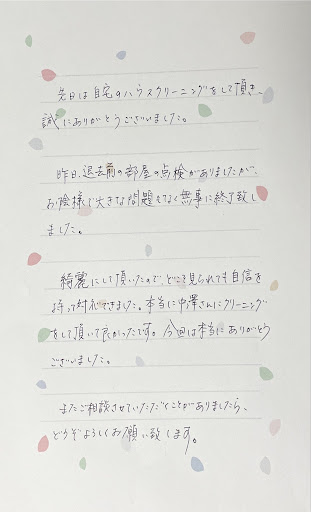 先日は自宅のハウスクリーニングをして頂き、
誠にありがとうございました。
昨日、退去前の部屋の点検がありましたが、
お陰様で大きな問題もなく無事に終了致し
ました。
綺麗にして頂いたので、どこを見られても自信を
持って対応できました。本当に中澤さんにクリーニング
をして頂いて良かったです。今回は本当にありがとう
ございました。
またご相談させていただくことがありましたら、
どうぞよろしくお願い致します。